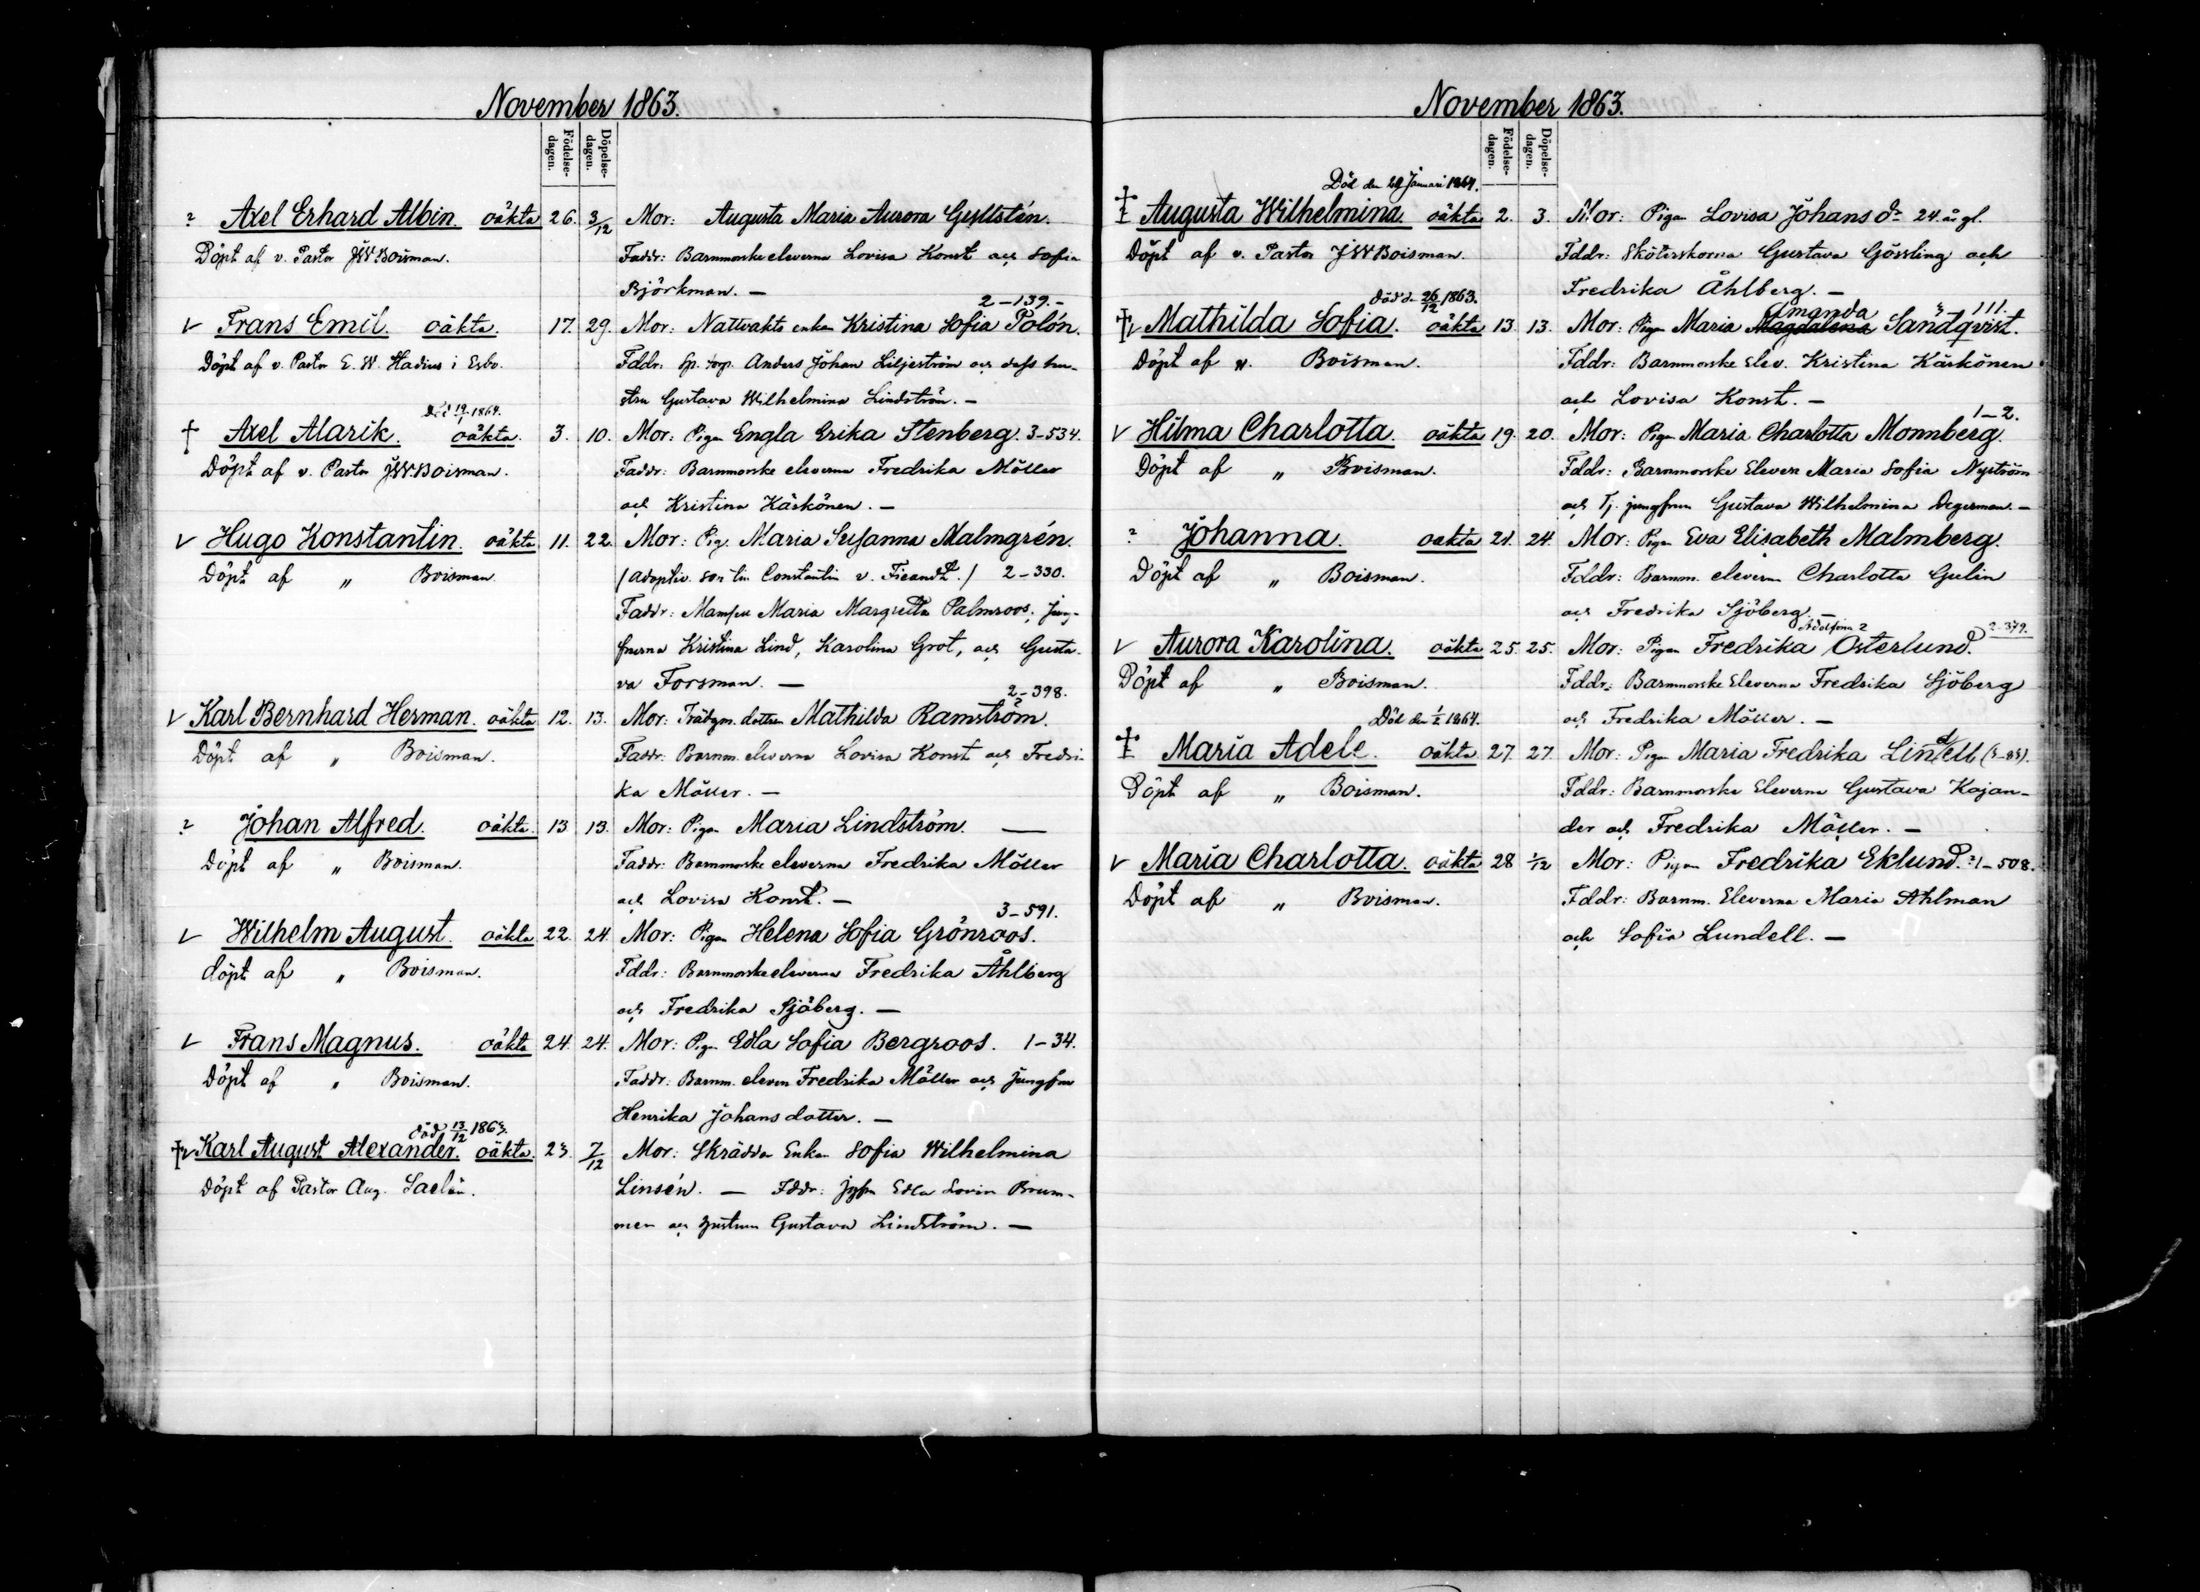 November 1863.
Födelse-dagen. Döpelse-dagen.
? Axel Erhard Albin. oäkta 26. 3/12 Mor: Augusta Maria Aurora Gyllstén.
Döpt af v. Pastor JW Boisman. Faddr: Barnmorskeeleverna Lovisa Konst och Sofia
Björkman. —
2–139.–
V Frans Emil. oäkta. 17. 29. Mor: Nattvakts enkan Kristina Sofia Polón.
Döpt af v. Pastor E. W. Hadius i Esbo. Fddr: Anders Johan Liljeström och dess hu-
stru Gustava Wilhelmina Lindström. —
Död 19/ 1864.
† Axel Alarik. oäkta. 3. 10. Mor: Pigan Engla Erika Stenberg. 3–534.
Döpt af v. Pastor JW Boisman. Faddr: Barnmorske eleverna Fredrika Möller
och Kristina Käskönen. —
V Hugo Konstantin. oäkta 11. 22. Mor: Pig. Maria Susanna Malmgrén.
Döpt af „ Boisman. (Adoptiv. son till Constantin v. Fieandt.) 2–330.
Faddr: Mamsell Maria Margretha Palmroos, Jung-
fruerna Kristina Lind, Karolina Grot, och Gusta-
va Forsman. —
2–398.
V Karl Bernhard Herman. oäkta 12. 13. Mor: Trädgm. dottren Mathilda Ramström.
Döpt af „ Boisman. Faddr: Barnm. eleverna Lovisa Konst och Fredri-
ka Möller. —
? Johan Alfred. oäkta. 13 13. Mor: Pigan Maria Lindström. —
Döpt af „ Boisman. Faddr: Barnmorske eleverna Fredrika Möller
och Lovisa Konst. —
3–591.
V Wilhelm August. oäkta 22. 24 Mor: Pigan Helena Sofia Grönroos.
Döpt af „ Boisman. Fddr: Barnmorskeeleverna Fredrika Åhlberg
och Fredrika Sjöberg. —
V Frans Magnus. oäkta 24. 24. Mor: Pigan Edla Sofia Bergroos. 1–34.
Döpt af „ Boisman. Faddr: Barnm. eleven Fredrika Möller och jungfru
Henrika Johansdotter. —
död 13/12 1863.
†V Karl August Alexander. oäkta. 23. 7/12 Mor: Skrädda Enkan Sofia Wilhelmina
Döpt af Pastor Aug. Saelän. Linsén. — Fddr: jgfru Edla Lovisa Brum-
mer och hustrun Gustava Lindström. —
November 1863.
Födelse-dagen. Döpelse-dagen.
Död den 29 Januari 1864.
† Augusta Wilhelmina. oäkta 2. 3. Mor: Pigan Lovisa Johans dr 24. år gl.
Döpt af v. Pastor JW Boisman. Fddr: Sköterskorna Gustava Gössling och
Fredrika Åhlberg. —
död d. 26/12 1863. Amanda 111.
†V Mathilda Sofia. oäkta 13. 13. Mor: Pigan Maria Magdalena Sandqvist.
Döpt af v. Boisman. Fddr: Barnmorske Elev. Kristina Käskönen
och Lovisa Konst. —
1–2.
V Hilma Charlotta. oäkta 19. 20. Mor: Pigan Maria Charlotta Monnberg.
Döpt af „ Boisman. Fddr: Barnmorske Eleven Maria Sofia Nyström
och Tj. jungfrun Gustava Wilhelmina Degerman. —
? Johanna. oäkta 21. 24. Mor: Pigan Eva Elisabeth Malmberg.
Döpt af „ Boisman. Fddr: Barnm. eleverna Charlotta Gulin
och Fredrika Sjöberg. —
Adolfina ? 2–379.
V Aurora Karolina. oäkta 25. 25. Mor: Pigan Fredrika Österlund.
Döpt af „ Boisman. Fddr: Barnmorske Eleverna Fredrika Sjöberg
och Fredrika Möller. —
Död den 1/2 1864.
† Maria Adele. oäkta 27. 27. Mor: Pigan Maria Fredrika Lindell
Döpt af „ Boisman. Fddr: Barnmorske Eleverna Gustava Kajan-
der och Fredrika Möller. —
V Maria Charlotta. oäkta 28 1/12 Mor: Pigan Fredrika Eklund. ?1–508.
Döpt af „ Boisman. Fddr: Barnm. Eleverna Maria Ahlman
och Sofia Lundell. —